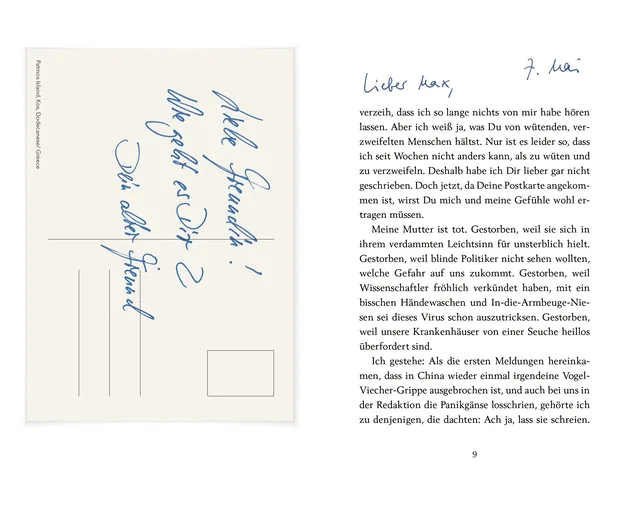 Patmos Island, Kos, Dodecanese/ Greece
Liebe Freundin!
Wie geht es Dir?
Dein alter Freund
7. Mai
Lieber Max,
verzeih, dass ich so lange nichts von mir habe hören
lassen. Aber ich weiß ja, was Du von wütenden, ver-
zweifelten Menschen hältst. Nur ist es leider so, dass
ich seit Wochen nicht anders kann, als zu wüten und
zu verzweifeln. Deshalb habe ich Dir lieber gar nicht
geschrieben. Doch jetzt, da Deine Postkarte angekom-
men ist, wirst Du mich und meine Gefühle wohl er-
tragen müssen.
Meine Mutter ist tot. Gestorben, weil sie sich in
ihrem verdammten Leichtsinn für unsterblich hielt.
Gestorben, weil blinde Politiker nicht sehen wollten,
welche Gefahr auf uns zukommt. Gestorben, weil
Wissenschaftler fröhlich verkündet haben, mit ein
bisschen Händewaschen und In-die-Armbeuge-Nie-
sen sei dieses Virus schon auszutricksen. Gestorben,
weil unsere Krankenhäuser von einer Seuche heillos
überfordert sind.
Ich gestehe: Als die ersten Meldungen hereinka-
men, dass in China wieder einmal irgendeine Vogel-
Viecher-Grippe ausgebrochen ist, und auch bei uns in
der Redaktion die Panikgänse losschrien, gehörte ich
zu denjenigen, die dachten: Ach ja, lass sie schreien.
9